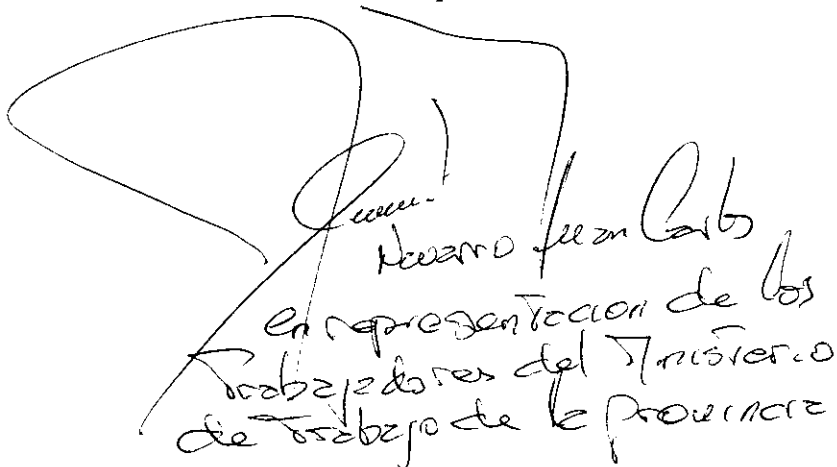 Navarro Juan Carlos
en representacion de los
trabajadores del Ministerio
de trabajo de la provincia